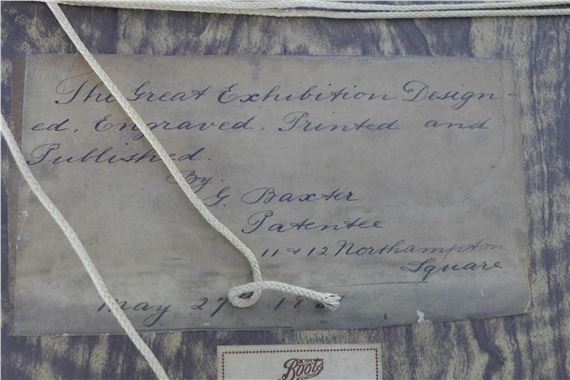 The Great Exhibition Design-
ed, Engraved, Printed and
Published.
By
G. Baxter
Patentee
11 & 12 Northampton
Square
May 27th
Boots